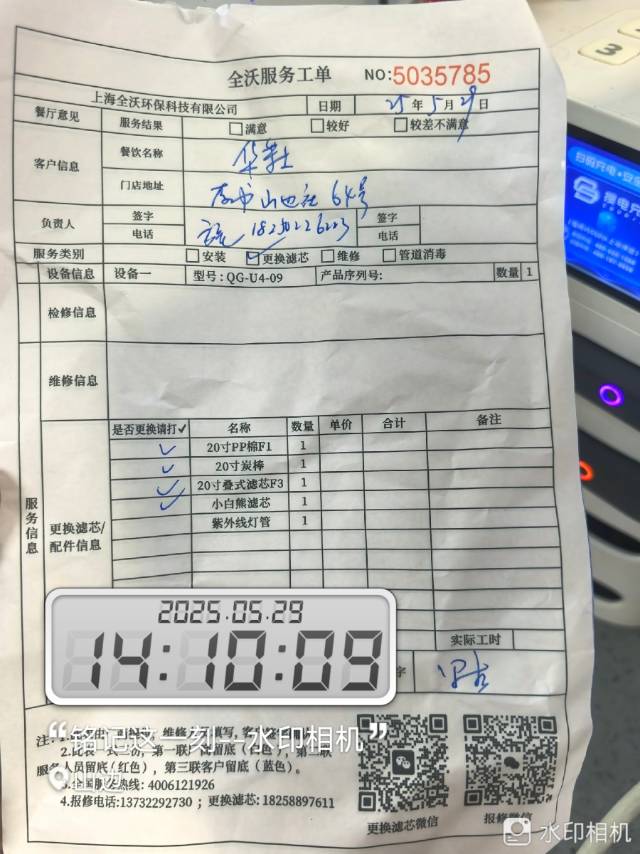 全沃服务工单 NO:5035785
上海全沃环保科技有限公司 日期 25年5月29日
餐厅意见 服务结果 满意 较好 较差不满意
客户信息 餐饮名称 华莱士
门店地址 山 64号
负责人 签字 签字
电话 电话
服务类别 安装 更换滤芯 维修 管道消毒
设备信息 设备一 型号:QG-U4-09 产品序列号: 数量 1
检修信息
维修信息
服务信息
更换滤芯/
配件信息
是否更换请打✓ 名称 数量 单价 合计 备注
✓ 20寸PP棉F1 1
✓ 20寸炭棒 1
✓ 20寸叠式滤芯F3 1
✓ 小白熊滤芯 1
紫外线灯管 1
实际工时
字
2025.05.29
14:10:09
“铭记这一刻，水印相机”
注:
维修
填写,
2.比表一式三份，第一联厂商留底(白色)，第二联
服务人员留底(红色)，第三联客户留底(蓝色)。
3.全国服务热线: 4006121926
4.报修电话:13732292730；更换滤芯: 18258897611
更换滤芯微信 报修微信
水印相机
3